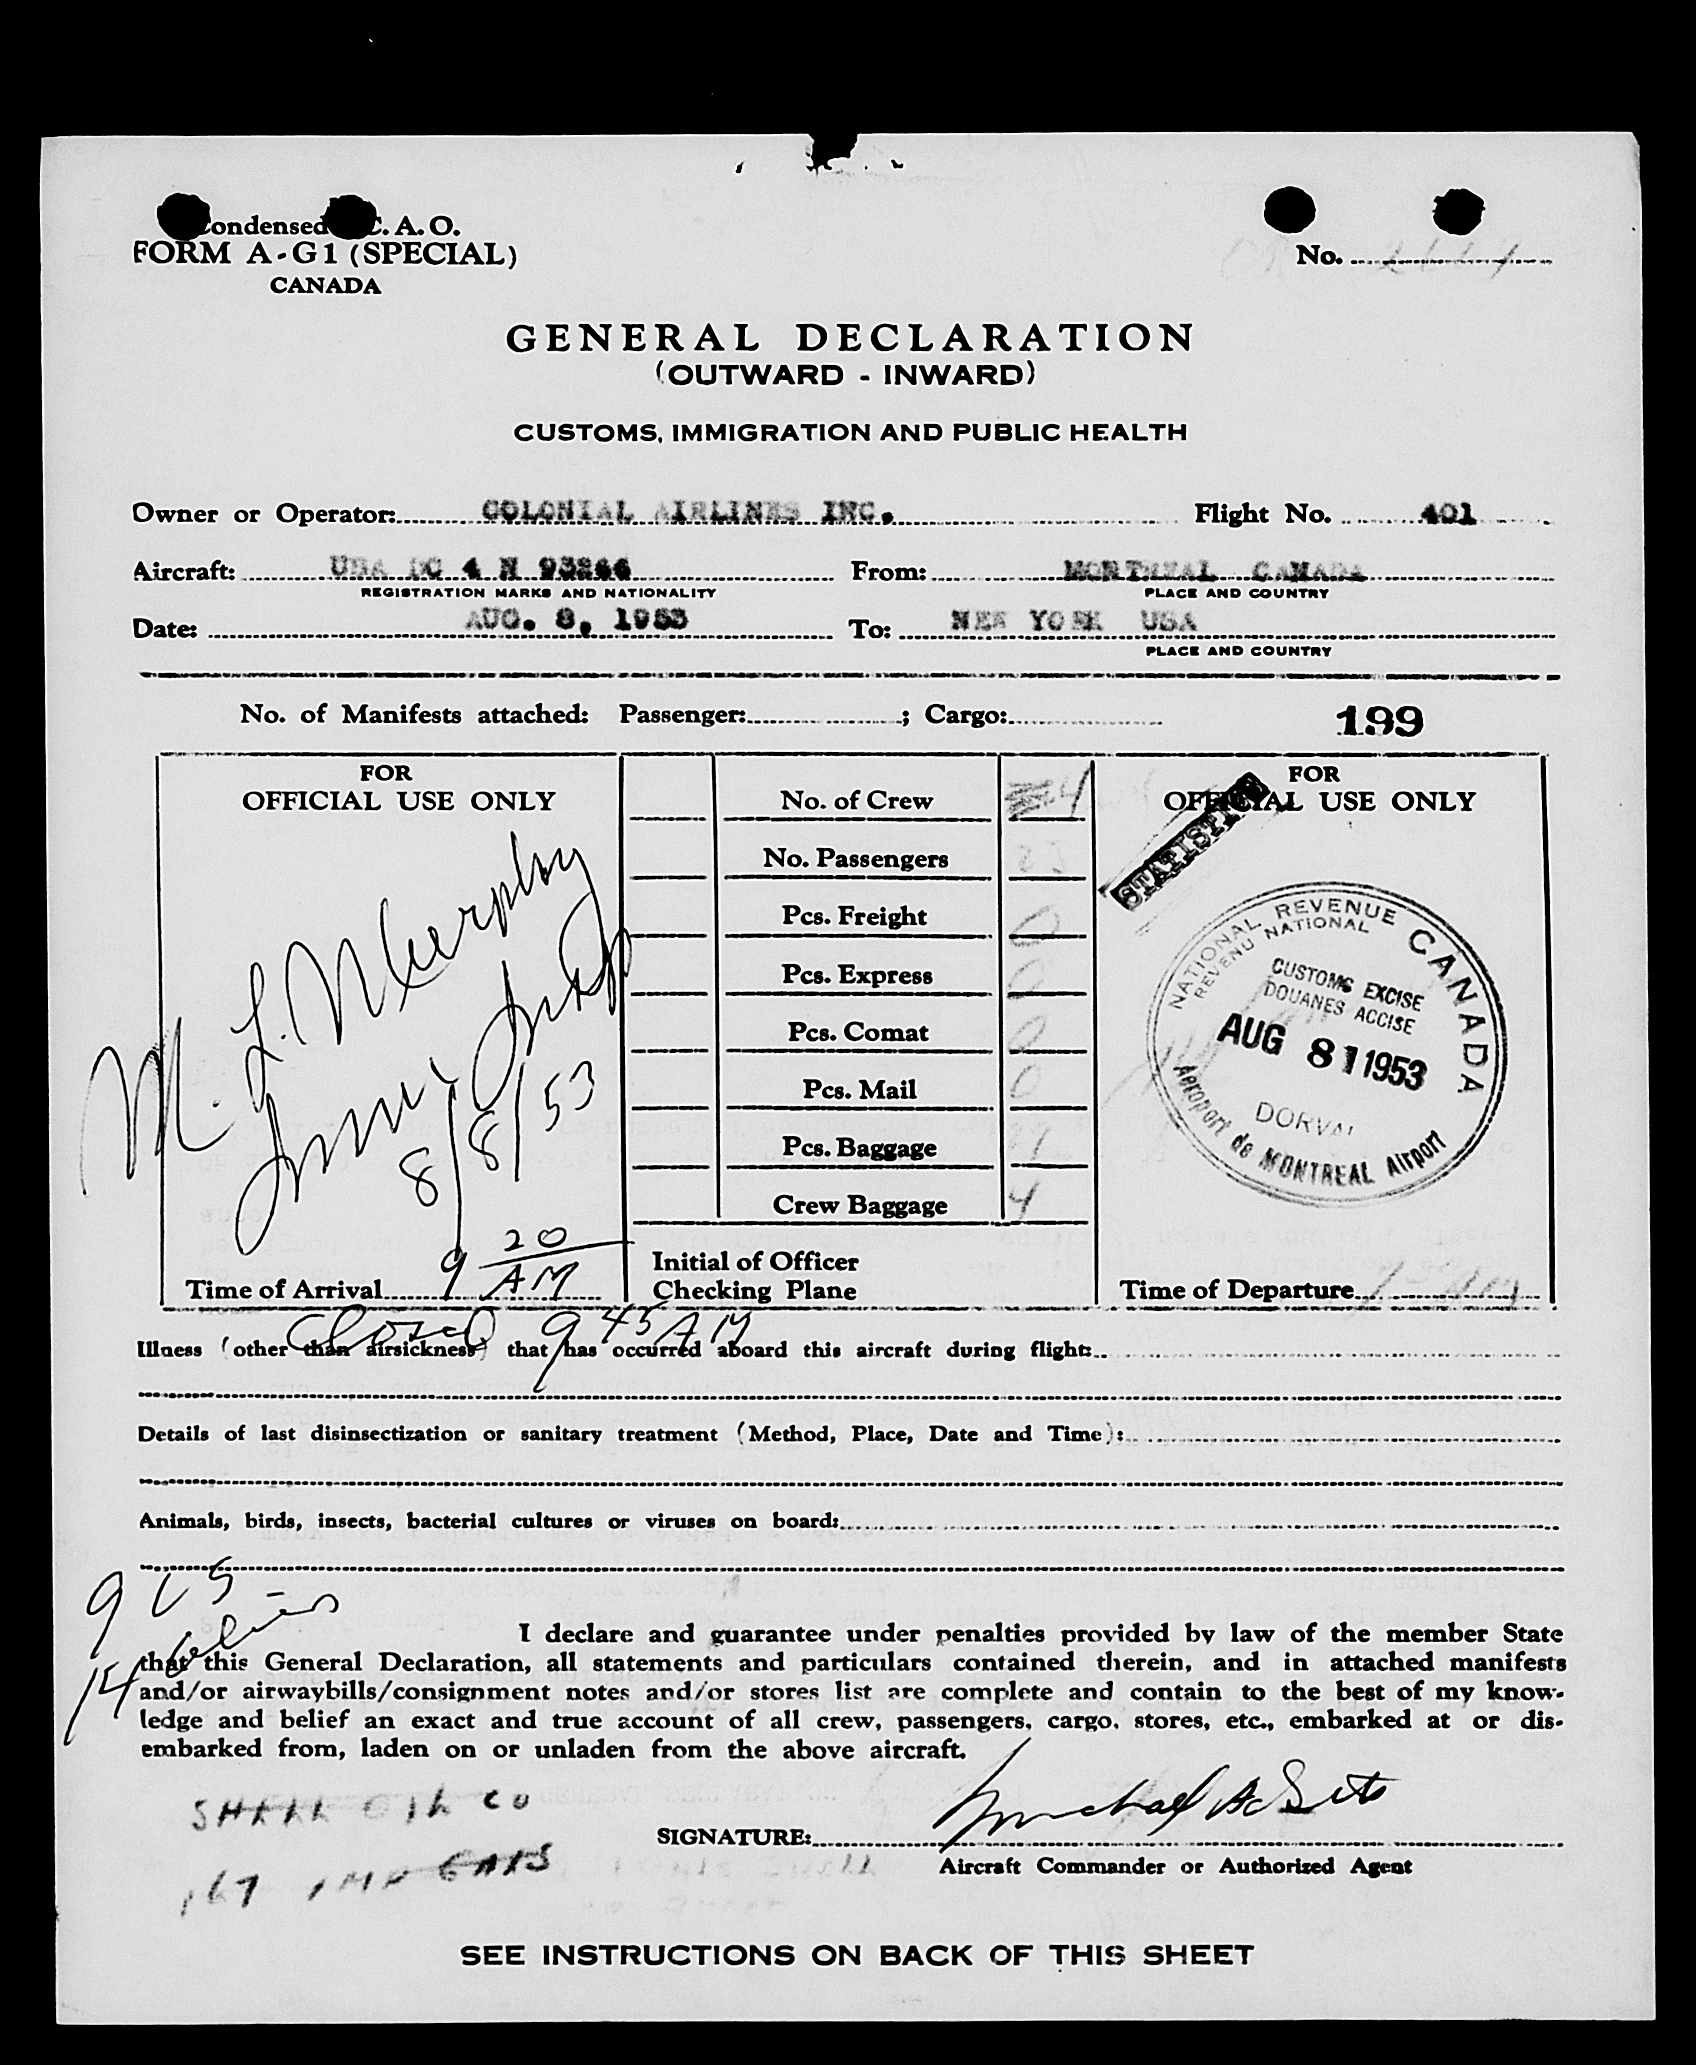 Condensed I.C.A.O.
FORM A-G1 (SPECIAL)
CANADA
No.
GENERAL DECLARATION
(OUTWARD - INWARD)
CUSTOMS, IMMIGRATION AND PUBLIC HEALTH
Owner or Operator: COLONIAL AIRLINES INC. Flight No. 401
Aircraft: USA DC 4 N 93266 From: MONTREAL CANADA
REGISTRATION MARKS AND NATIONALITY PLACE AND COUNTRY
Date: AUG. 8, 1953 To: NEW YORK USA
PLACE AND COUNTRY
No. of Manifests attached: Passenger: ; Cargo: 199
FOR
OFFICIAL USE ONLY
M. L. Murphy
8/8/53
Time of Arrival 9 20 AM
No. of Crew 4
No. Passengers
Pcs. Freight 0
Pcs. Express 0
Pcs. Comat 0
Pcs. Mail 0
Pcs. Baggage
Crew Baggage 4
Initial of Officer
Checking Plane
FOR
OFFICIAL USE ONLY
STATISTICS
NATIONAL REVENUE CANADA
REVENU NATIONAL
CUSTOMS EXCISE
DOUANES ACCISE
AUG 8 1953
DORVAL
Aéroport de MONTREAL Airport
Time of Departure
Closed 9 45 AM
Illness (other than airsickness) that has occurred aboard this aircraft during flight:
Details of last disinsectization or sanitary treatment (Method, Place, Date and Time):
Animals, birds, insects, bacterial cultures or viruses on board:
9 US
14
I declare and guarantee under penalties provided by law of the member State
that this General Declaration, all statements and particulars contained therein, and in attached manifests
and/or airwaybills/consignment notes and/or stores list are complete and contain to the best of my know-
ledge and belief an exact and true account of all crew, passengers, cargo, stores, etc., embarked at or dis-
embarked from, laden on or unladen from the above aircraft.
SHELL OIL CO
167 IMP GALS
SIGNATURE:
Aircraft Commander or Authorized Agent
SEE INSTRUCTIONS ON BACK OF THIS SHEET